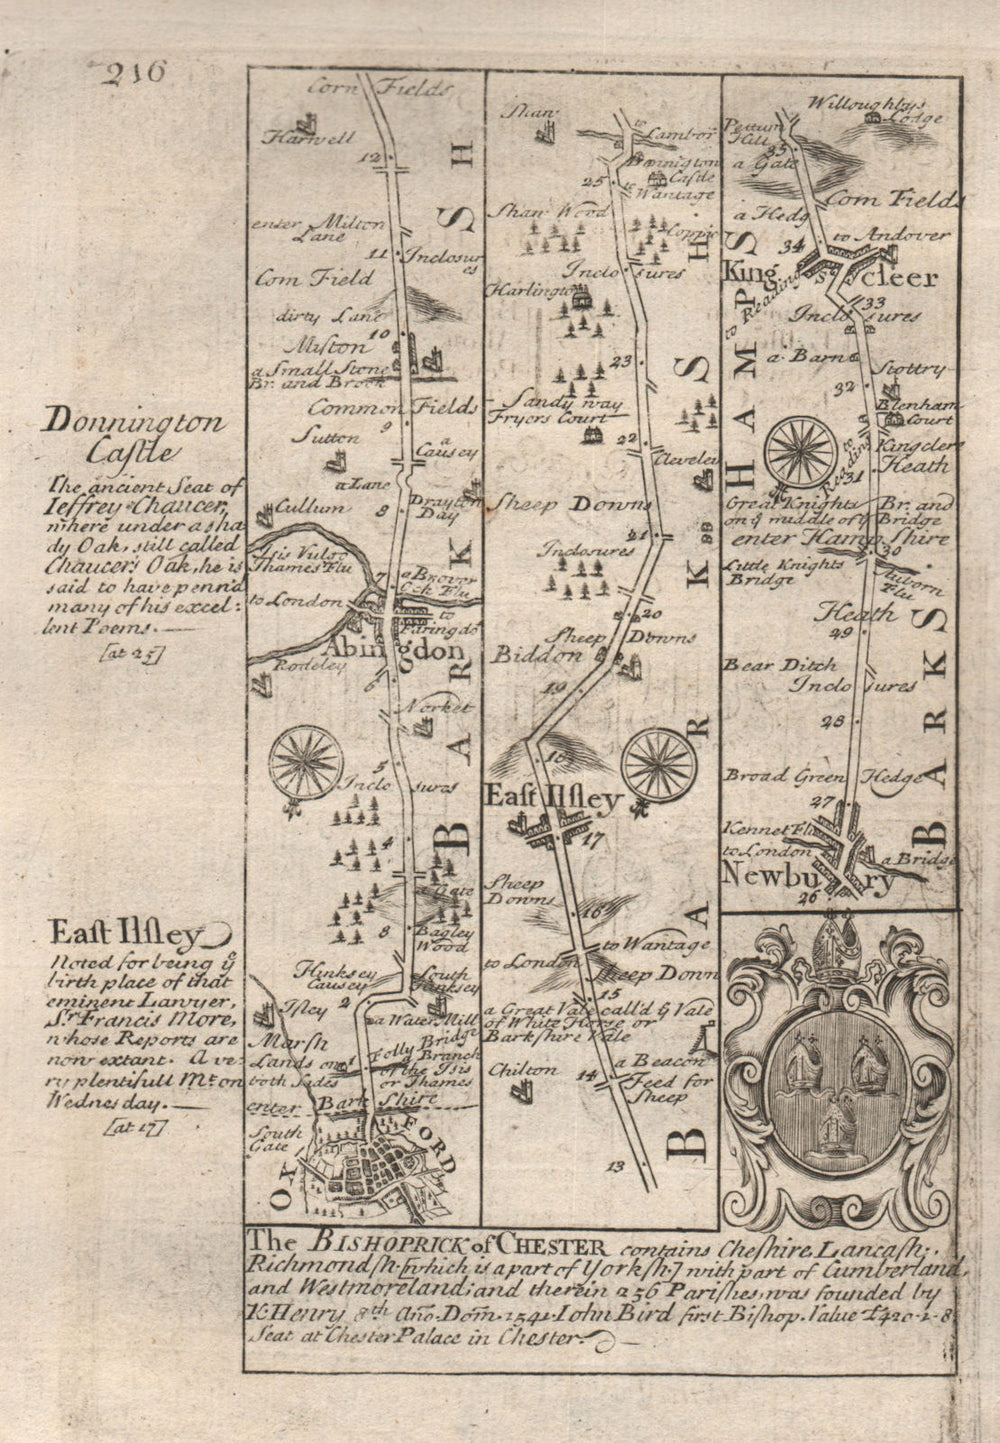 216
Donnington
Castle
The ancient Seat of
Ieffrey Chaucer,
where under a sha
dy Oak, still called
Chaucers Oak, he is
said to have penn'd
many of his excel:
lent Poems.
[at 25]
East Ilsley
Noted for being ye
birth place of that
eminent Lawyer,
Sr Francis More,
whose Reports are
now extant. A ve:
ry plentifull Mt. on
Wednesday.
[at 17]
Corn Fields
Harwell
12
enter Milton
Lane
11 Inclosur
es
Corn Field
dirty Lane
10
Milton
a Small Stone
Br. and Brook
Common Fields
9
Sutton
a
Causey
a Lane
Drayton
Day
8
Cullum
Isis Vulgo
Thames Flu
7
to London
to
Faringdo
Abingdon
Rodeley
6
Norket
5
Inclosures
4
a Gate
8
Bagley
Wood
Hinksey
Causey
South
Hinksey
2
Ifley
a Water Mill
Marsh
Lands on
both Sides
1
Folly Bridge
a Branch
of the Isis
or Thames
enter Bark Shire
South
Gate
OXFORD
BARKSH
Shaw
to
Lambor
Donnington
Castle
25
to
Wantage
Shaw Wood
Coppic
Inclosures
Harlington
23
Sandy way
Fryers Court
22
Cleveley
Sheep Downs
21
Inclosures
20
Sheep Downs
Biddon
19
18
East Ilsley
17
Sheep
Downs
16
to Wantage
to London
Sheep Down
15
a Great Vale call'd ye Vale
of White Horse or
Barkshire Vale
Chilton
14
a Beacon
Feed for
Sheep
13
BARKSH
Willoughbys
Lodge
Pettum
Hill
35
a Gate
Corn Fields
a Hedg
34
to Andover
Kingscleer
to Reading
33
Inclosures
a Barn
32
Stottry
Blenham
Court
to Reading
Kingclere
Heath
31
Great Knights Br. and
on ye middle of ye Bridge
enter Hamp Shire
30
Little Knights
Bridge
Auborn
Flu
Heath
29
Bear Ditch
Inclosures
28
Broad Green Hedge
27
Kennet Flu
to London
a Bridge
Newbury
26
HAMPS
BARKS
The BISHOPRICK of CHESTER contains Cheshire, Lancash:
Richmondsh. [which is a part of Yorksh.] with part of Cumberland,
and Westmoreland; and therein 256 Parishes, was founded by
K. Henry 8th Ano. Dom. 1541. Iohn Bird first Bishop. Value £420.1.8
Seat at Chester Palace in Chester.